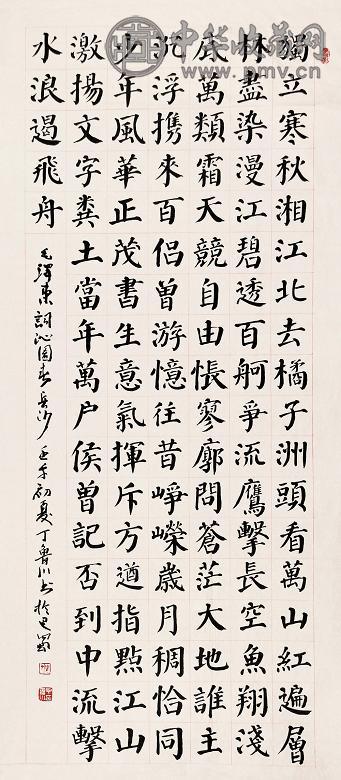 中华收藏网
www.pmv.cn
獨立寒秋湘江北去橘子洲頭看萬山紅遍層
林盡染漫江碧透百舸爭流鷹擊長空魚翔淺
底萬類霜天競自由悵寥廓問蒼茫大地誰主
沉浮携來百侣曾游憶往昔崢嶸歲月稠恰同
少年風華正茂書生意氣揮斥方遒指點江山
激揚文字糞土當年萬户侯曾記否到中流擊
水浪遏飛舟
毛澤東詞沁園春長沙 壬午初夏丁魯川书於